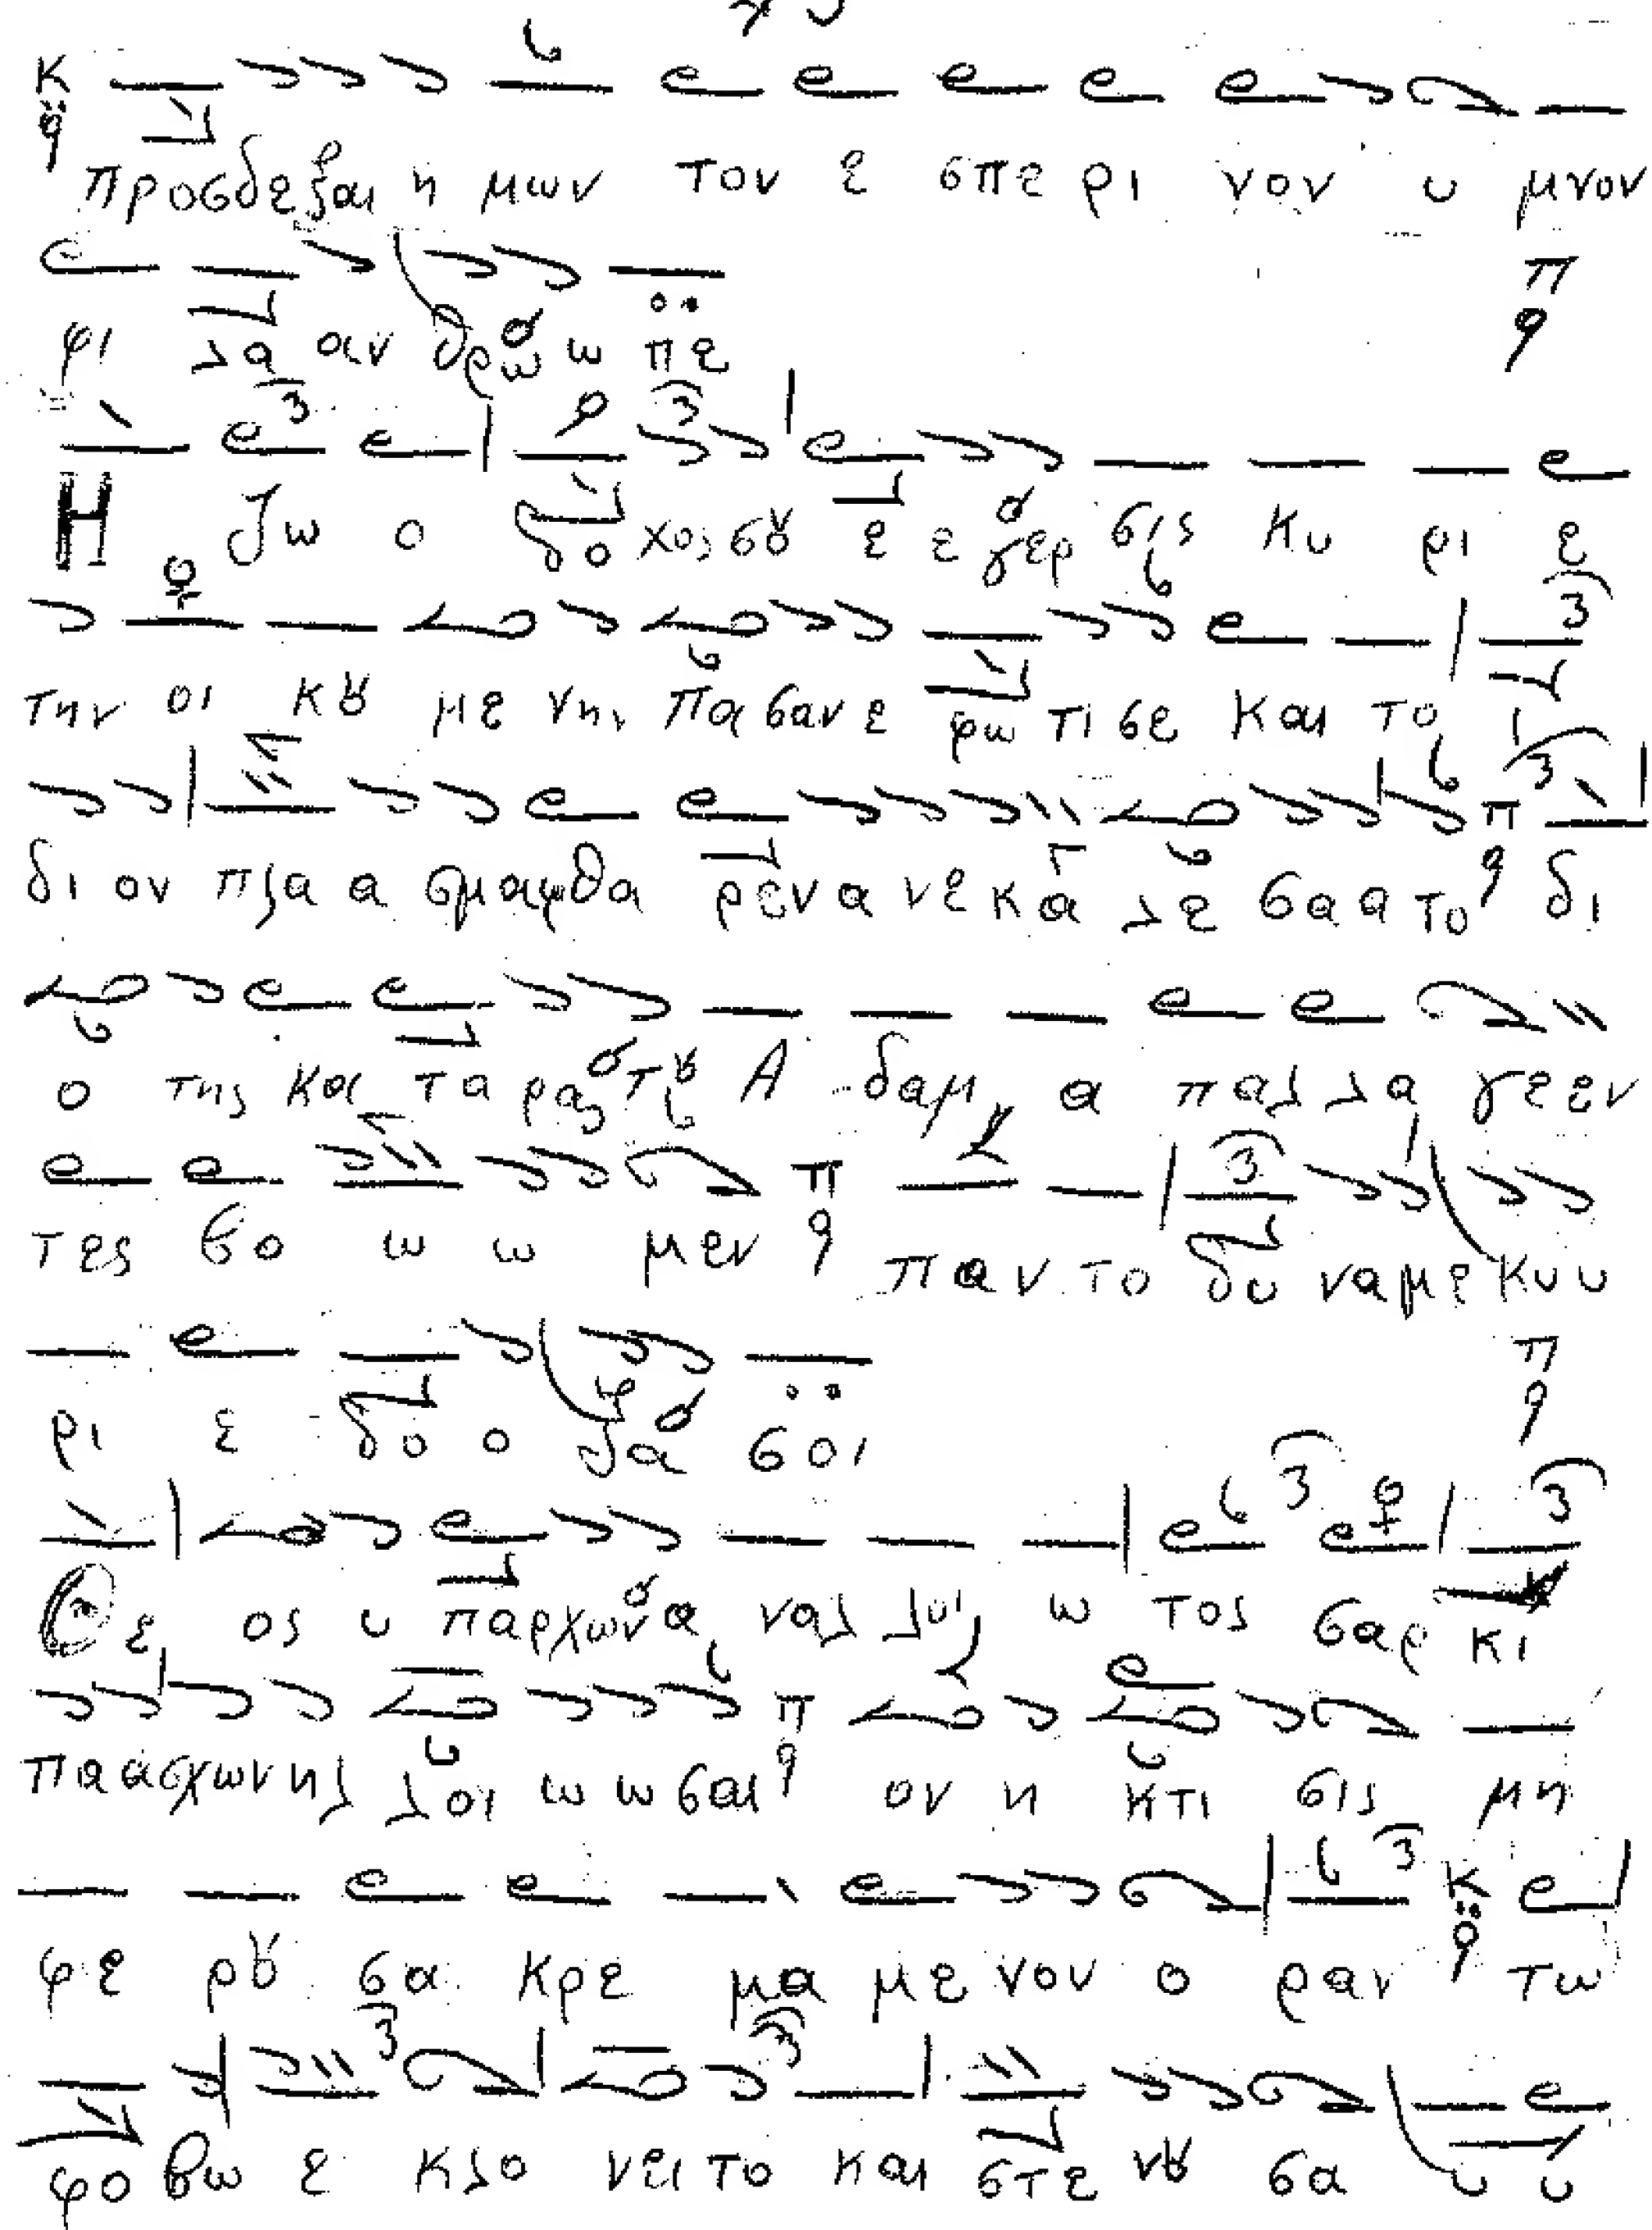 προσδεξαι η μων τον ε σπε ρι νον υ μνον
φι λα αν θρω ω πε
Η ζω ο δο χος σȣ ε ε γερ σις Κυ ρι ε
την οι κȣ με νην πα σαν ε φω τι σε και το ι
δι ον πλα α σμα φθα ρεν α νε κα λε σα α το δι
ο της κα τα ρας τȣ Α δαμ α παλ λα γε εν
τες βο ω ω μεν παν το δυ να με Κυ υ
ρι ε δο ο ξα σοι
Θε ος υ παρχων αναλλοι ω τος σαρ κι
πα α σχων ηλ λοι ω ω σαι ον η κτι σις μη
φε ρȣ σα κρε μα με νον ο ραν τω
φο βω ε κλο νει το και στε νȣ σα υ υ